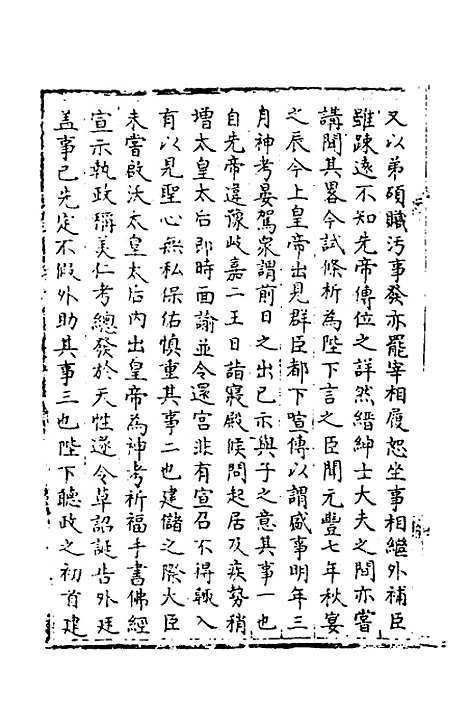 又以弟碩贓汚事發亦罷宰相履恕坐事相繼外補臣
雖踈遠不知先帝傳位之詳然縉紳士大夫之間亦嘗
講聞其畧今試條析為陛下言之臣聞元豐七年秋宴
之辰今上皇帝出見群臣都下喧傳以謂盛事明年三
月神考晏駕衆謂前日之出已示與子之意其事一也
自先帝違豫岐嘉二王日詣寢殿候問起居及疾勢稍
増太皇太后即時面諭並令還宮非有宣召不得輙入
有以見聖心無私保佑慎重其事二也建儲之際大臣
未嘗啟沃太皇太后内出皇帝為神考祈福手書佛經
宣示執政稱美仁孝總發於天性遂令草詔誕告外廷
盖事已先定不假外助其事三也陛下聽政之初首建